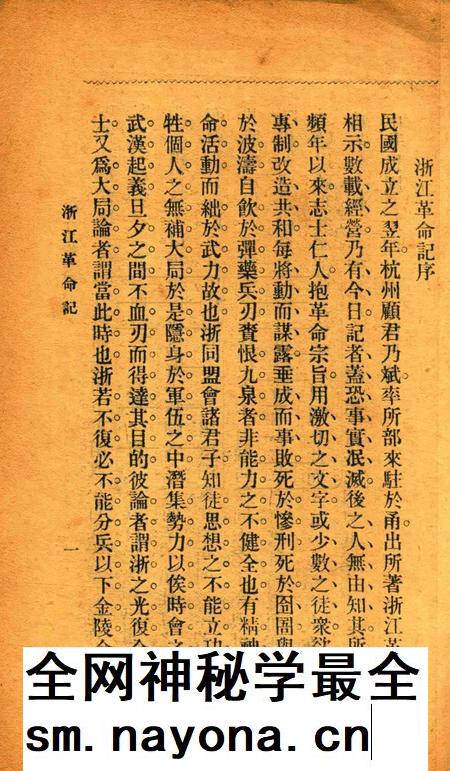 浙江革命記序
民國成立之翌年杭州顧君乃斌率所部來駐於甬出所著浙江革
相示數載經營乃有今日記者蓋恐事實泯滅後之人無由知其所
頻年以來志士仁人抱革命宗旨用激切之文字或少數之徒衆欲
專制改造共和每將動而謀露垂成而事敗死於慘刑死於囹圄與
於波濤自飲於彈藥兵刃賫恨九泉者非能力之不健全也有精神
命活動而絀於武力故也浙同盟會諸君子知徒思想之不能立功
牲個人之無補大局於是隱身於軍伍之中潛集勢力以俟時會之
武漢起義旦夕之間不血刃而得達其目的彼論者謂浙之光復全
士又爲大局論者謂當此時也浙若不復必不能分兵以下金陵
浙江革命記
一
全网神秘学最全
sm.nayona.cn